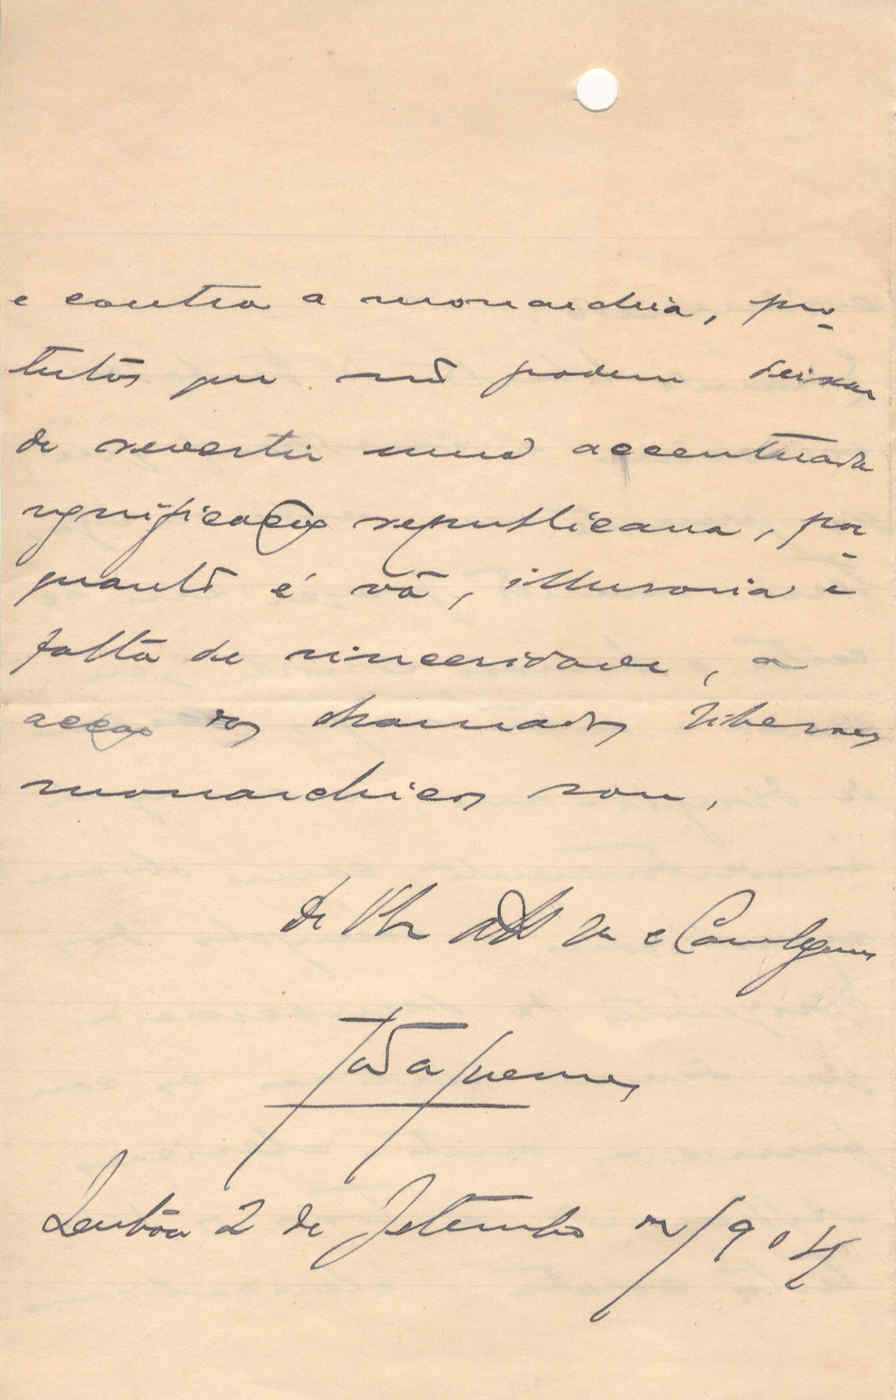 e contra a monarchia, pro-
testos que não podem deixar
de revestir uma accentuada
significação republicana, por-
quanto é vã, illusoria e
falta de sinceridade, a
acção dos chamados liberaes
monarchicos
De V. e
2 de Setembro 904